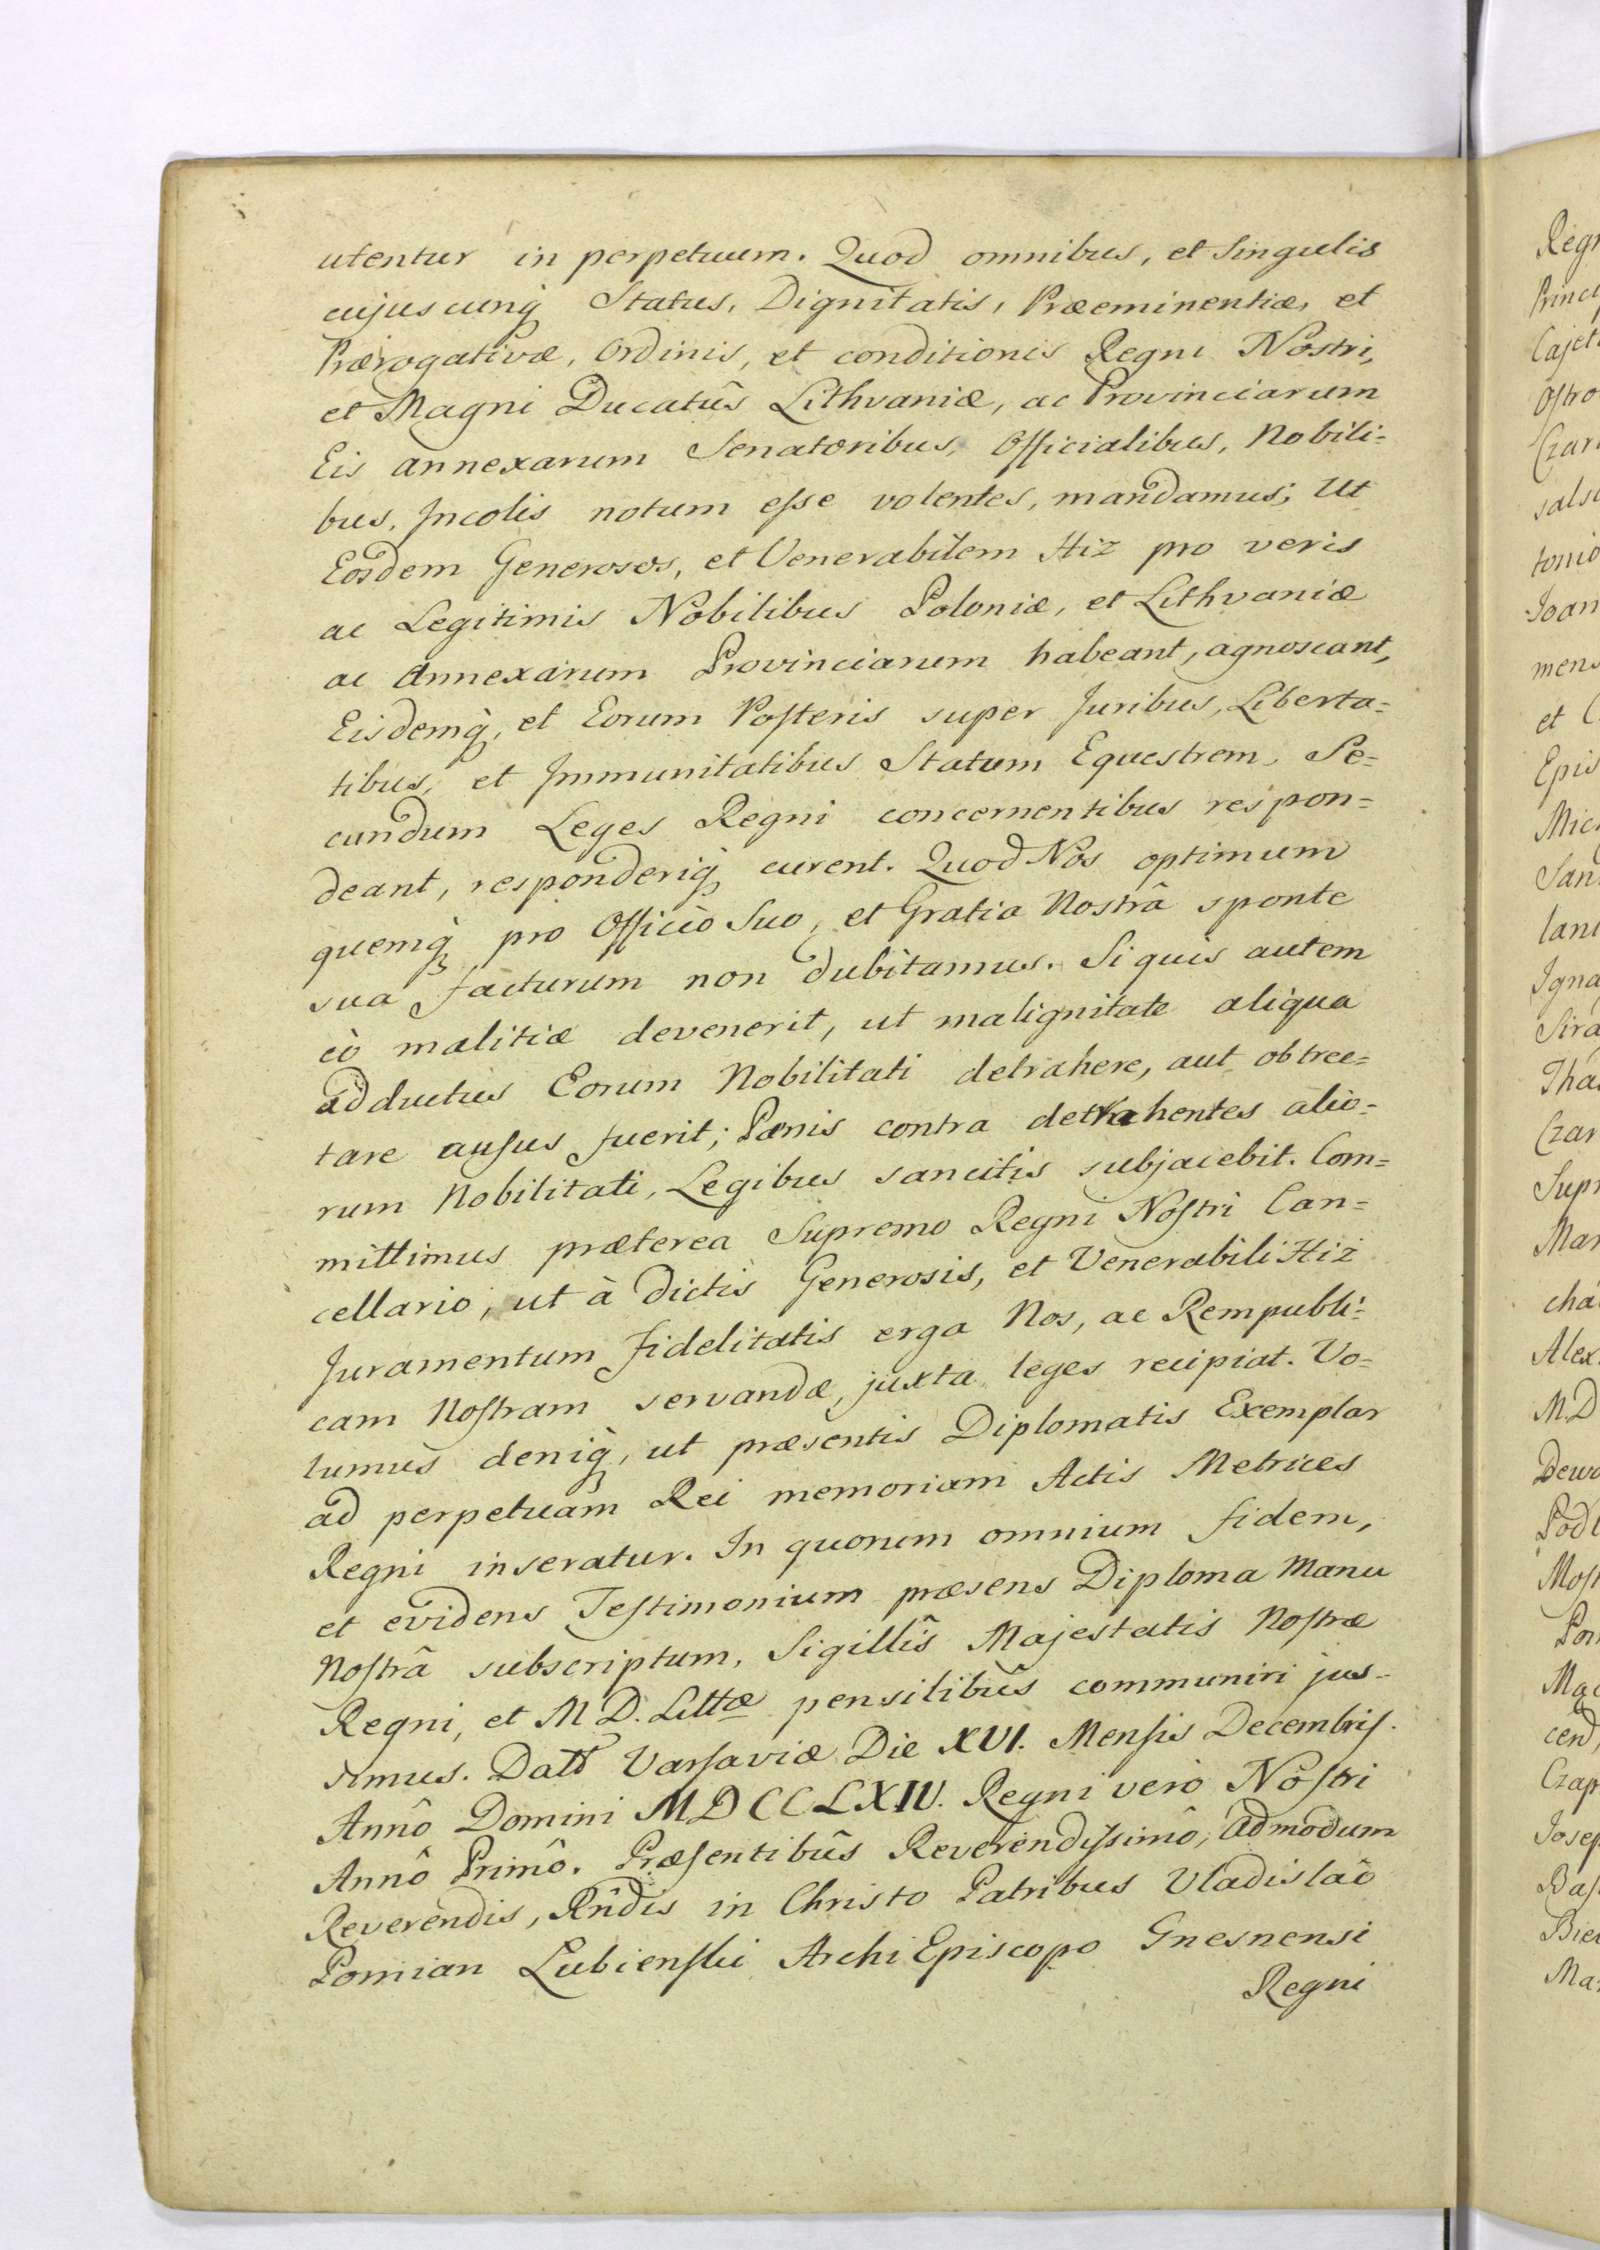 utentur in perpetuum. Quod omnibus, et Singulis
cujuscunq̀ Status, Dignitatis, Præeminentiæ, et
Prærogativæ, Ordinis, et conditionis Regni Nostri,
et Magni Ducatûs Lithvaniæ, ac Provinciarum
Eis annexarum Senatoribus, Officialibus, Nobili=
bus, Incolis notum eſse volentes, mandamus; Ut
Eosdem Generosos, et Venerabilem Hiz pro veris
ac Legitimis Nobilibus Poloniæ, et Lithvaniæ
ac Annexarum Provinciarum habeant, agnoscant,
Eisdemq̀, et Eorum Poſteris super Juribus, Liberta=
tibus, et Immunitatibus Statum Equestrem, Se=
cundum Leges Regni concernentibus respon=
deant, responderiq̀ curent. Quod Nos optimum
quemq̀ pro Officio Suo, et Gratia Nostrâ sponte
sua facturum non dubitamus. Si quis autem
eò malitiæ devenerit, ut malignitate aliqua
adductus Eorum Nobilitati detrahere, aut obtrec=
tare auſus fuerit; Pænis contra detrahentes alio=
rum Nobilitati, Legibus sancitis subjacebit. Com=
mittimus præterea Supremo Regni Noſtri Can=
cellario, ut à dictis Generosis, et Venerabili Hiz
Juramentum fidelitatis erga Nos, ac Rempubli=
cam Noſtram servandæ, juxta leges recipiat. Vo=
lumus deniq̀, ut præsentis Diplomatis Exemplar
ad perpetuam Rei memoriam Actis Metrices
Regni inseratur. In quorum omnium fidem,
et evidens Teſtimonium præsens Diploma Manu
Noſtrâ subscriptum, Sigillîs Majestatis Noſtræ
Regni, et M D. Littæ pensilibûs communiri jus-
simus. Datt Varſaviæ Die XVI. Menſis Decembriſ.
Annô Domini MDCCLXIV. Regni verò Noſtri
Annô Primô. Præſentibûs Reverendiſsimô, Admodum
Reverendis, Rñdis in Christo Patribus Vladislaô
Pomian Lubienſki Archi Episcopo Gnesnensi
Regni
Regn
Princ
Cajet
Oſtro
Czar
salsi
tonio
Joan
mens
et C
Epis
Mic
San
lani
Igna
Sira
Tha
Czar
Supr
Mar
cha
Alex.
M.D
Dewo
Podl
Moſt
Pom
Ma
cend
Czap
Josep
Baſ
Bie
Ma